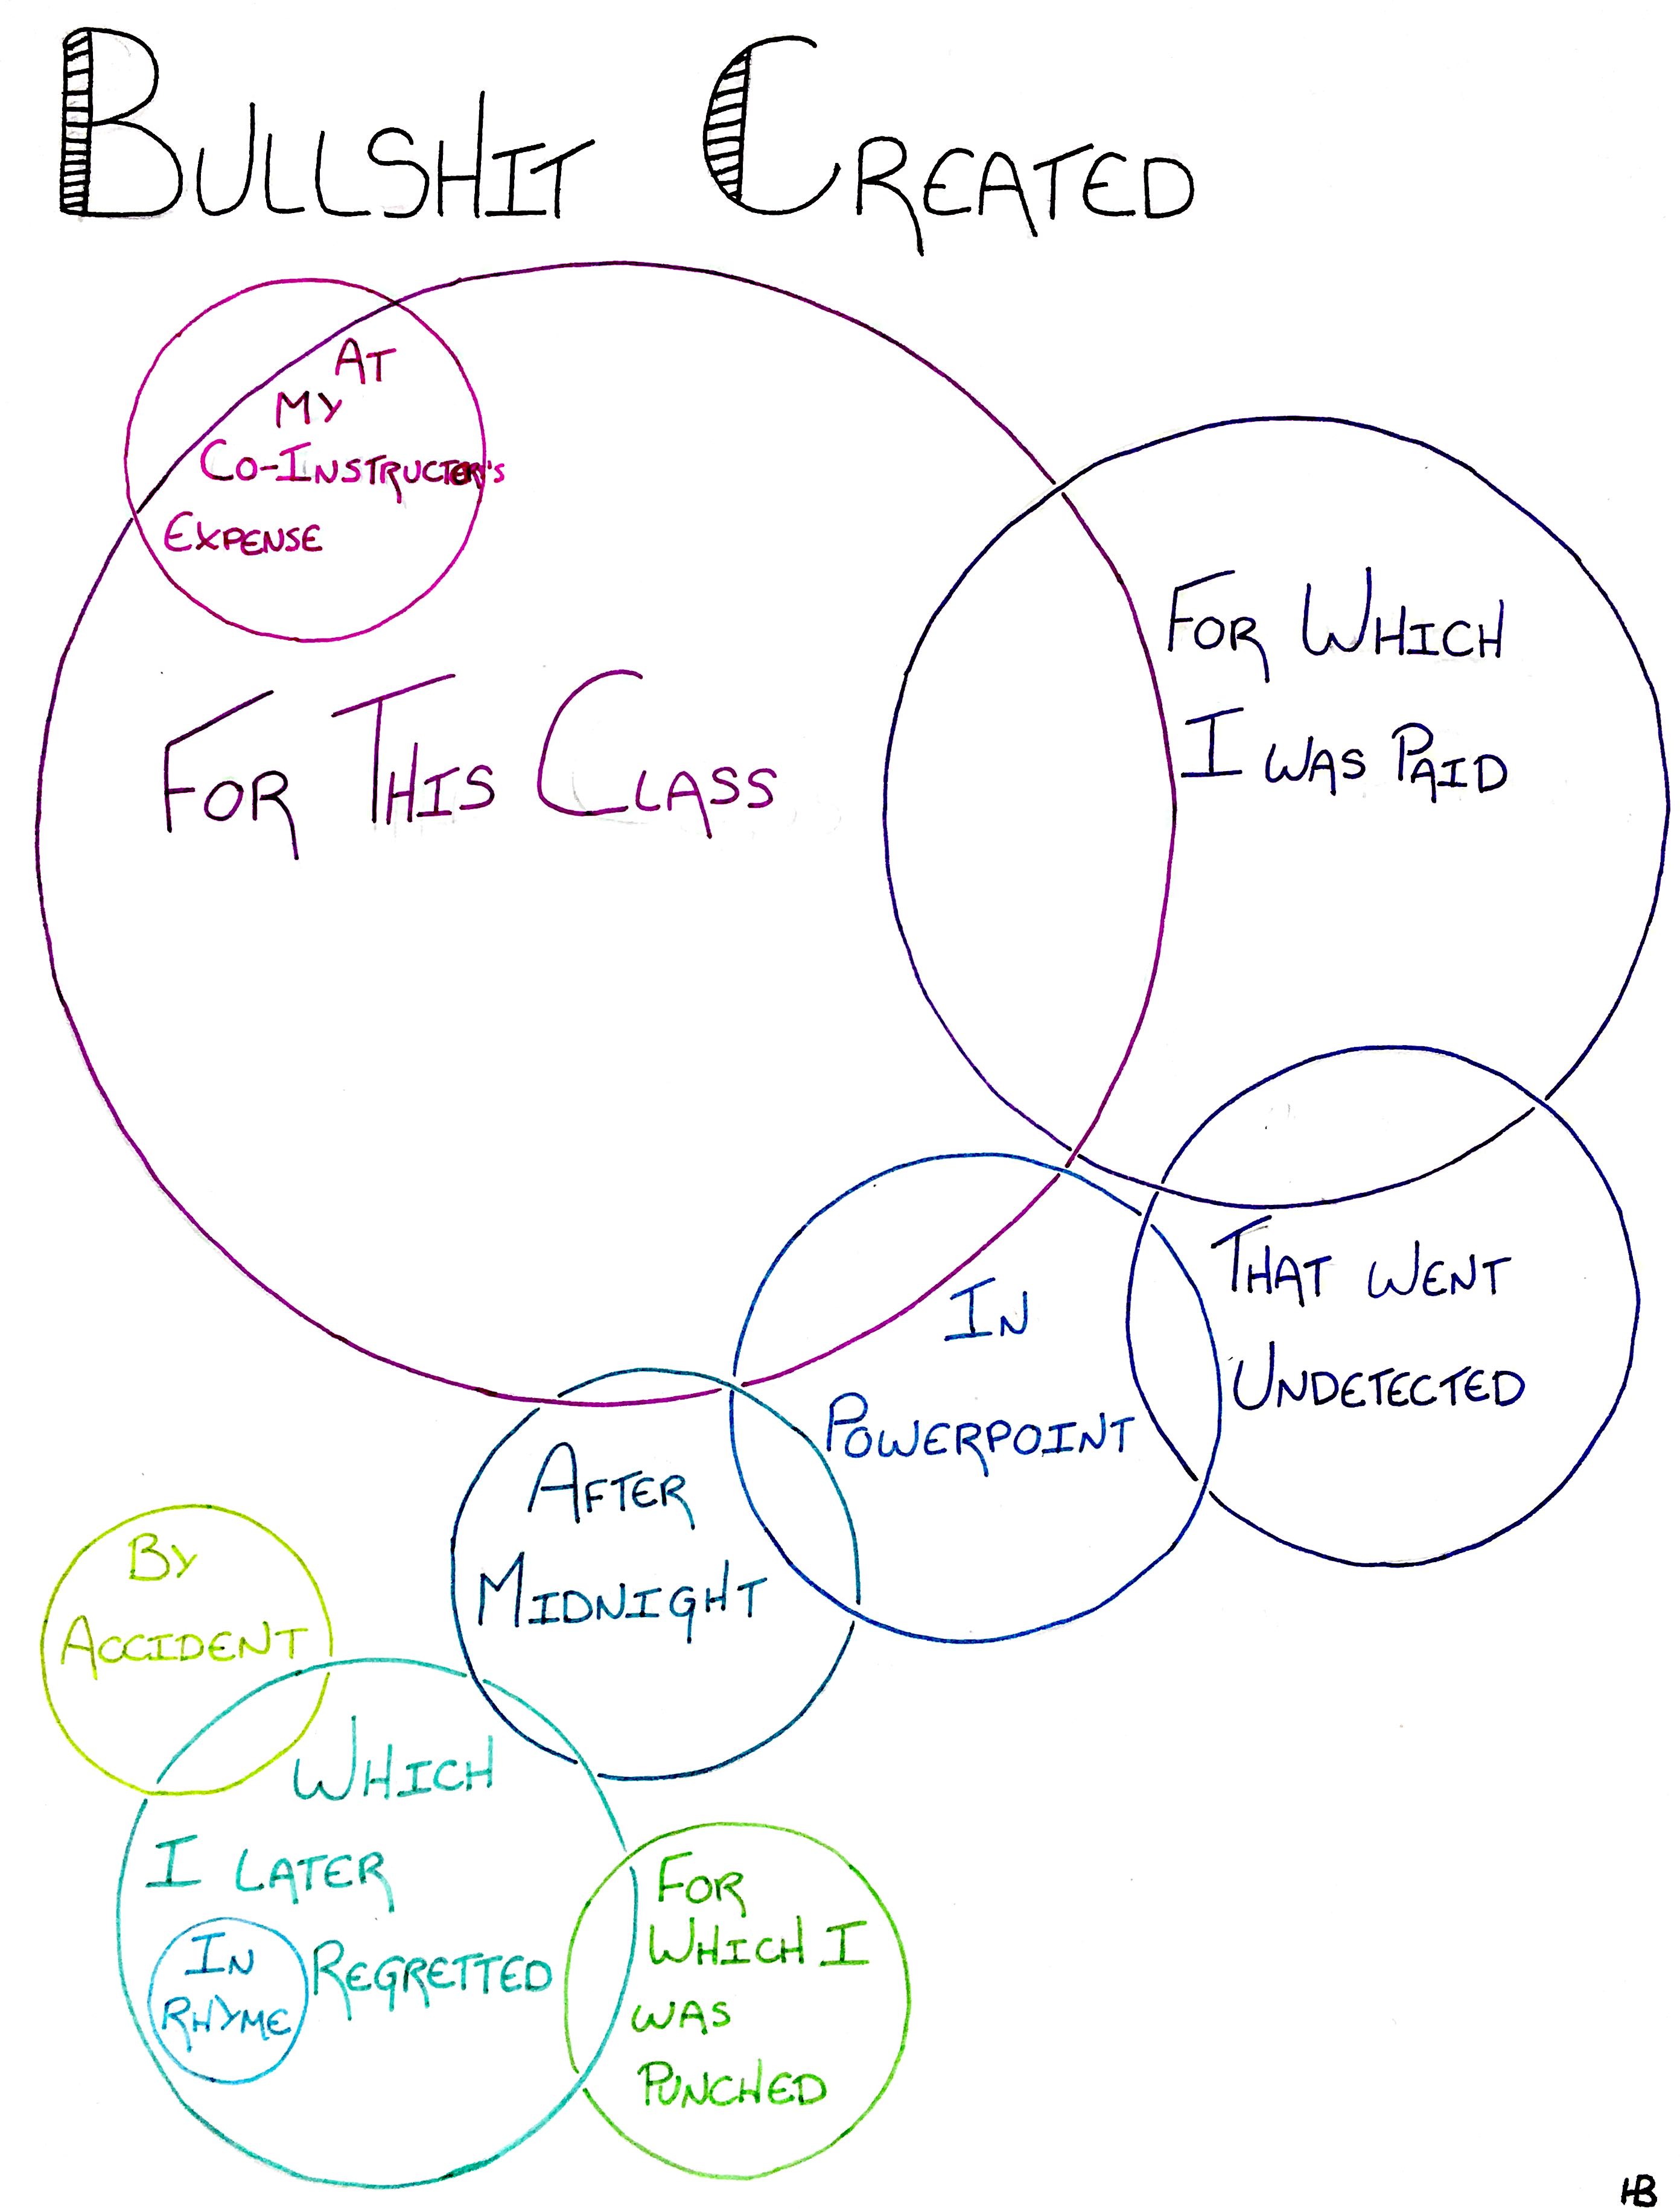 BULLSHIT CREATED
AT
MY
CO-INSTRUCTOR'S
EXPENSE
FOR THIS CLASS
FOR WHICH
I WAS PAID
THAT WENT
UNDETECTED
IN
POWERPOINT
AFTER
MIDNIGHT
BY
ACCIDENT
WHICH
I LATER
REGRETTED
IN
RHYME
FOR
WHICH I
WAS
PUNCHED
HB